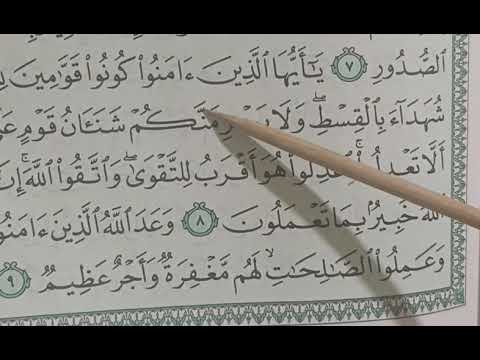 ٱلصُّدُورِ ٧ يَـٰٓأَيُّهَا ٱلَّذِينَ ءَامَنُوا۟ كُونُوا۟ قَوَّٰمِينَ
شُهَدَآءَ بِٱلْقِسْطِ ۖ وَلَا يَجْرِمَنَّكُمْ شَنَـَٔانُ قَوْمٍ
أَلَّا تَعْدِلُوا۟ ۚ ٱعْدِلُوا۟ هُوَ أَقْرَبُ لِلتَّقْوَىٰ ۖ وَٱتَّقُوا۟ ٱللَّهَ ۚ إِنَّ
ٱللَّهَ خَبِيرٌۢ بِمَا تَعْمَلُونَ ٨ وَعَدَ ٱللَّهُ ٱلَّذِينَ ءَامَنُوا۟
وَعَمِلُوا۟ ٱلصَّـٰلِحَـٰتِ ۙ لَهُم مَّغْفِرَةٌ وَأَجْرٌ عَظِيمٌ ٩